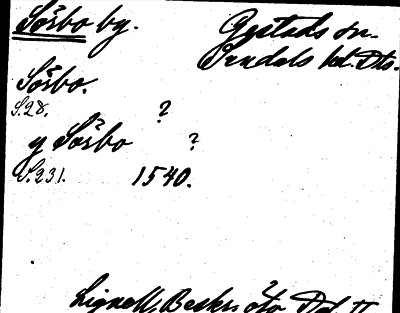 Sörbo by. Gestads sn.
Sundals hd. Dls.
Sörbo.
S.28. ?
y Sörbo ?
S.231. 1540.
Lignell, Beskr. öfv. Dal. II